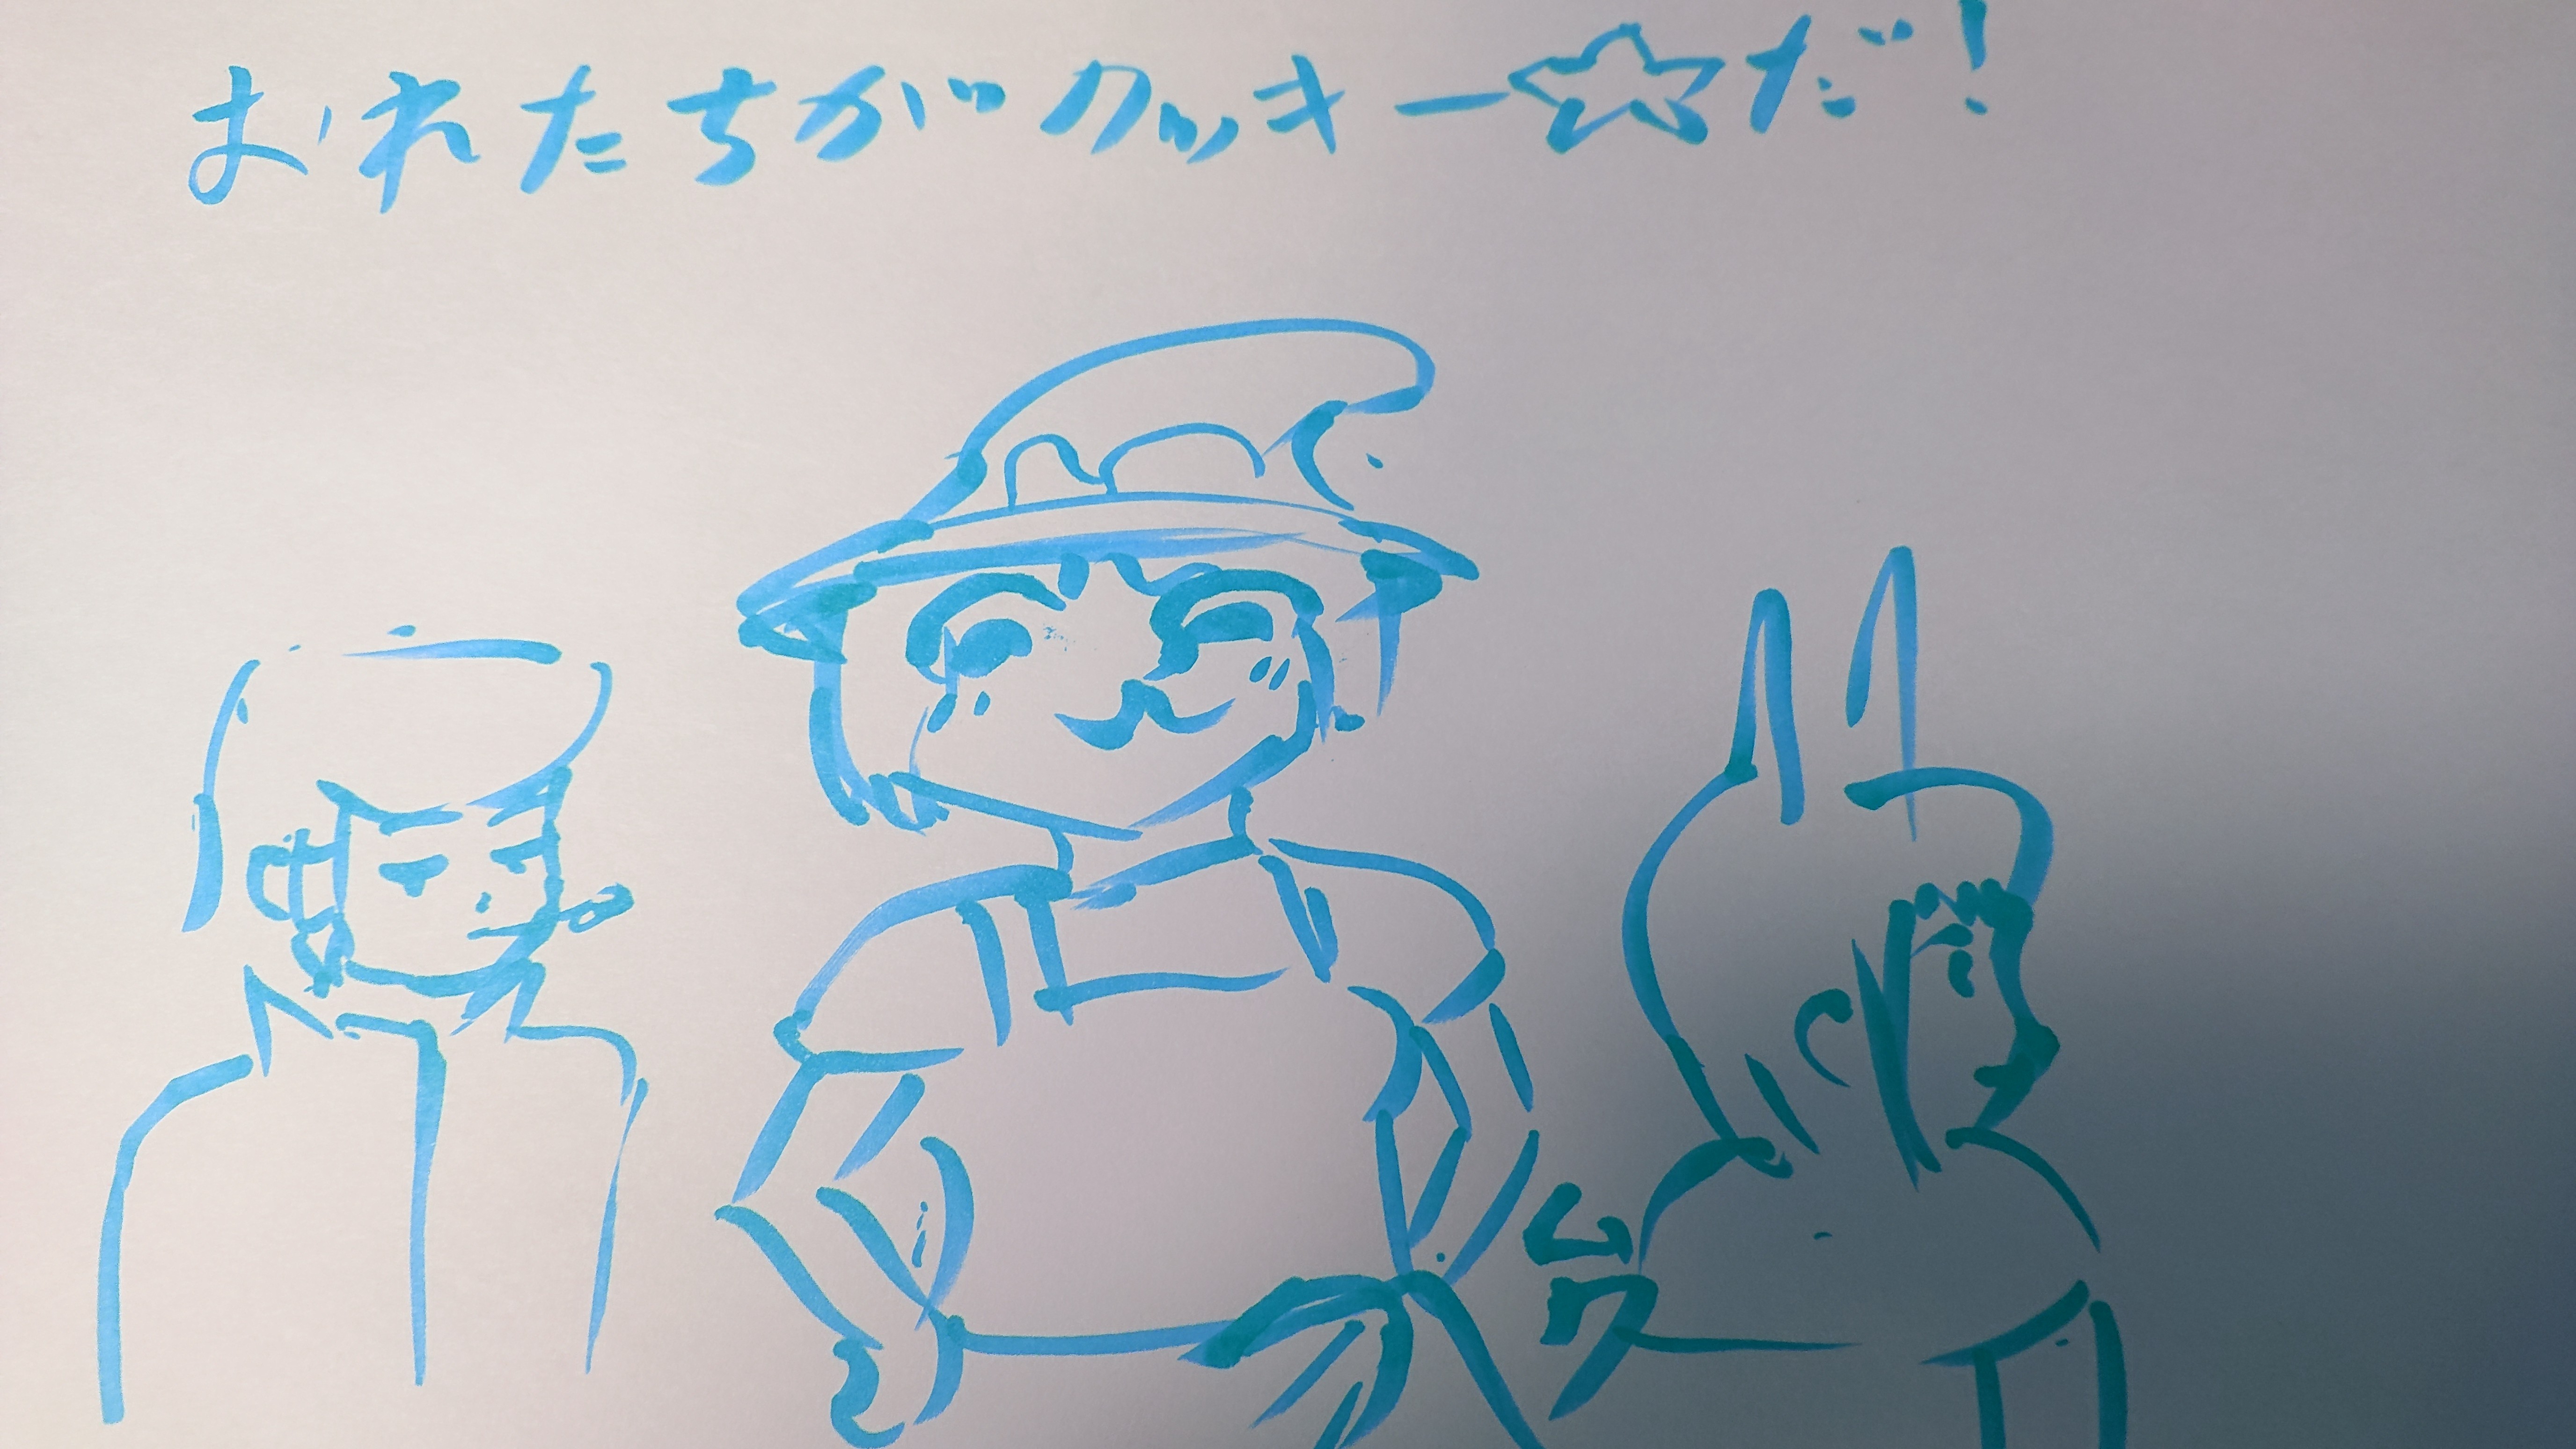 おれたちがクッキー☆だ!
ムワ